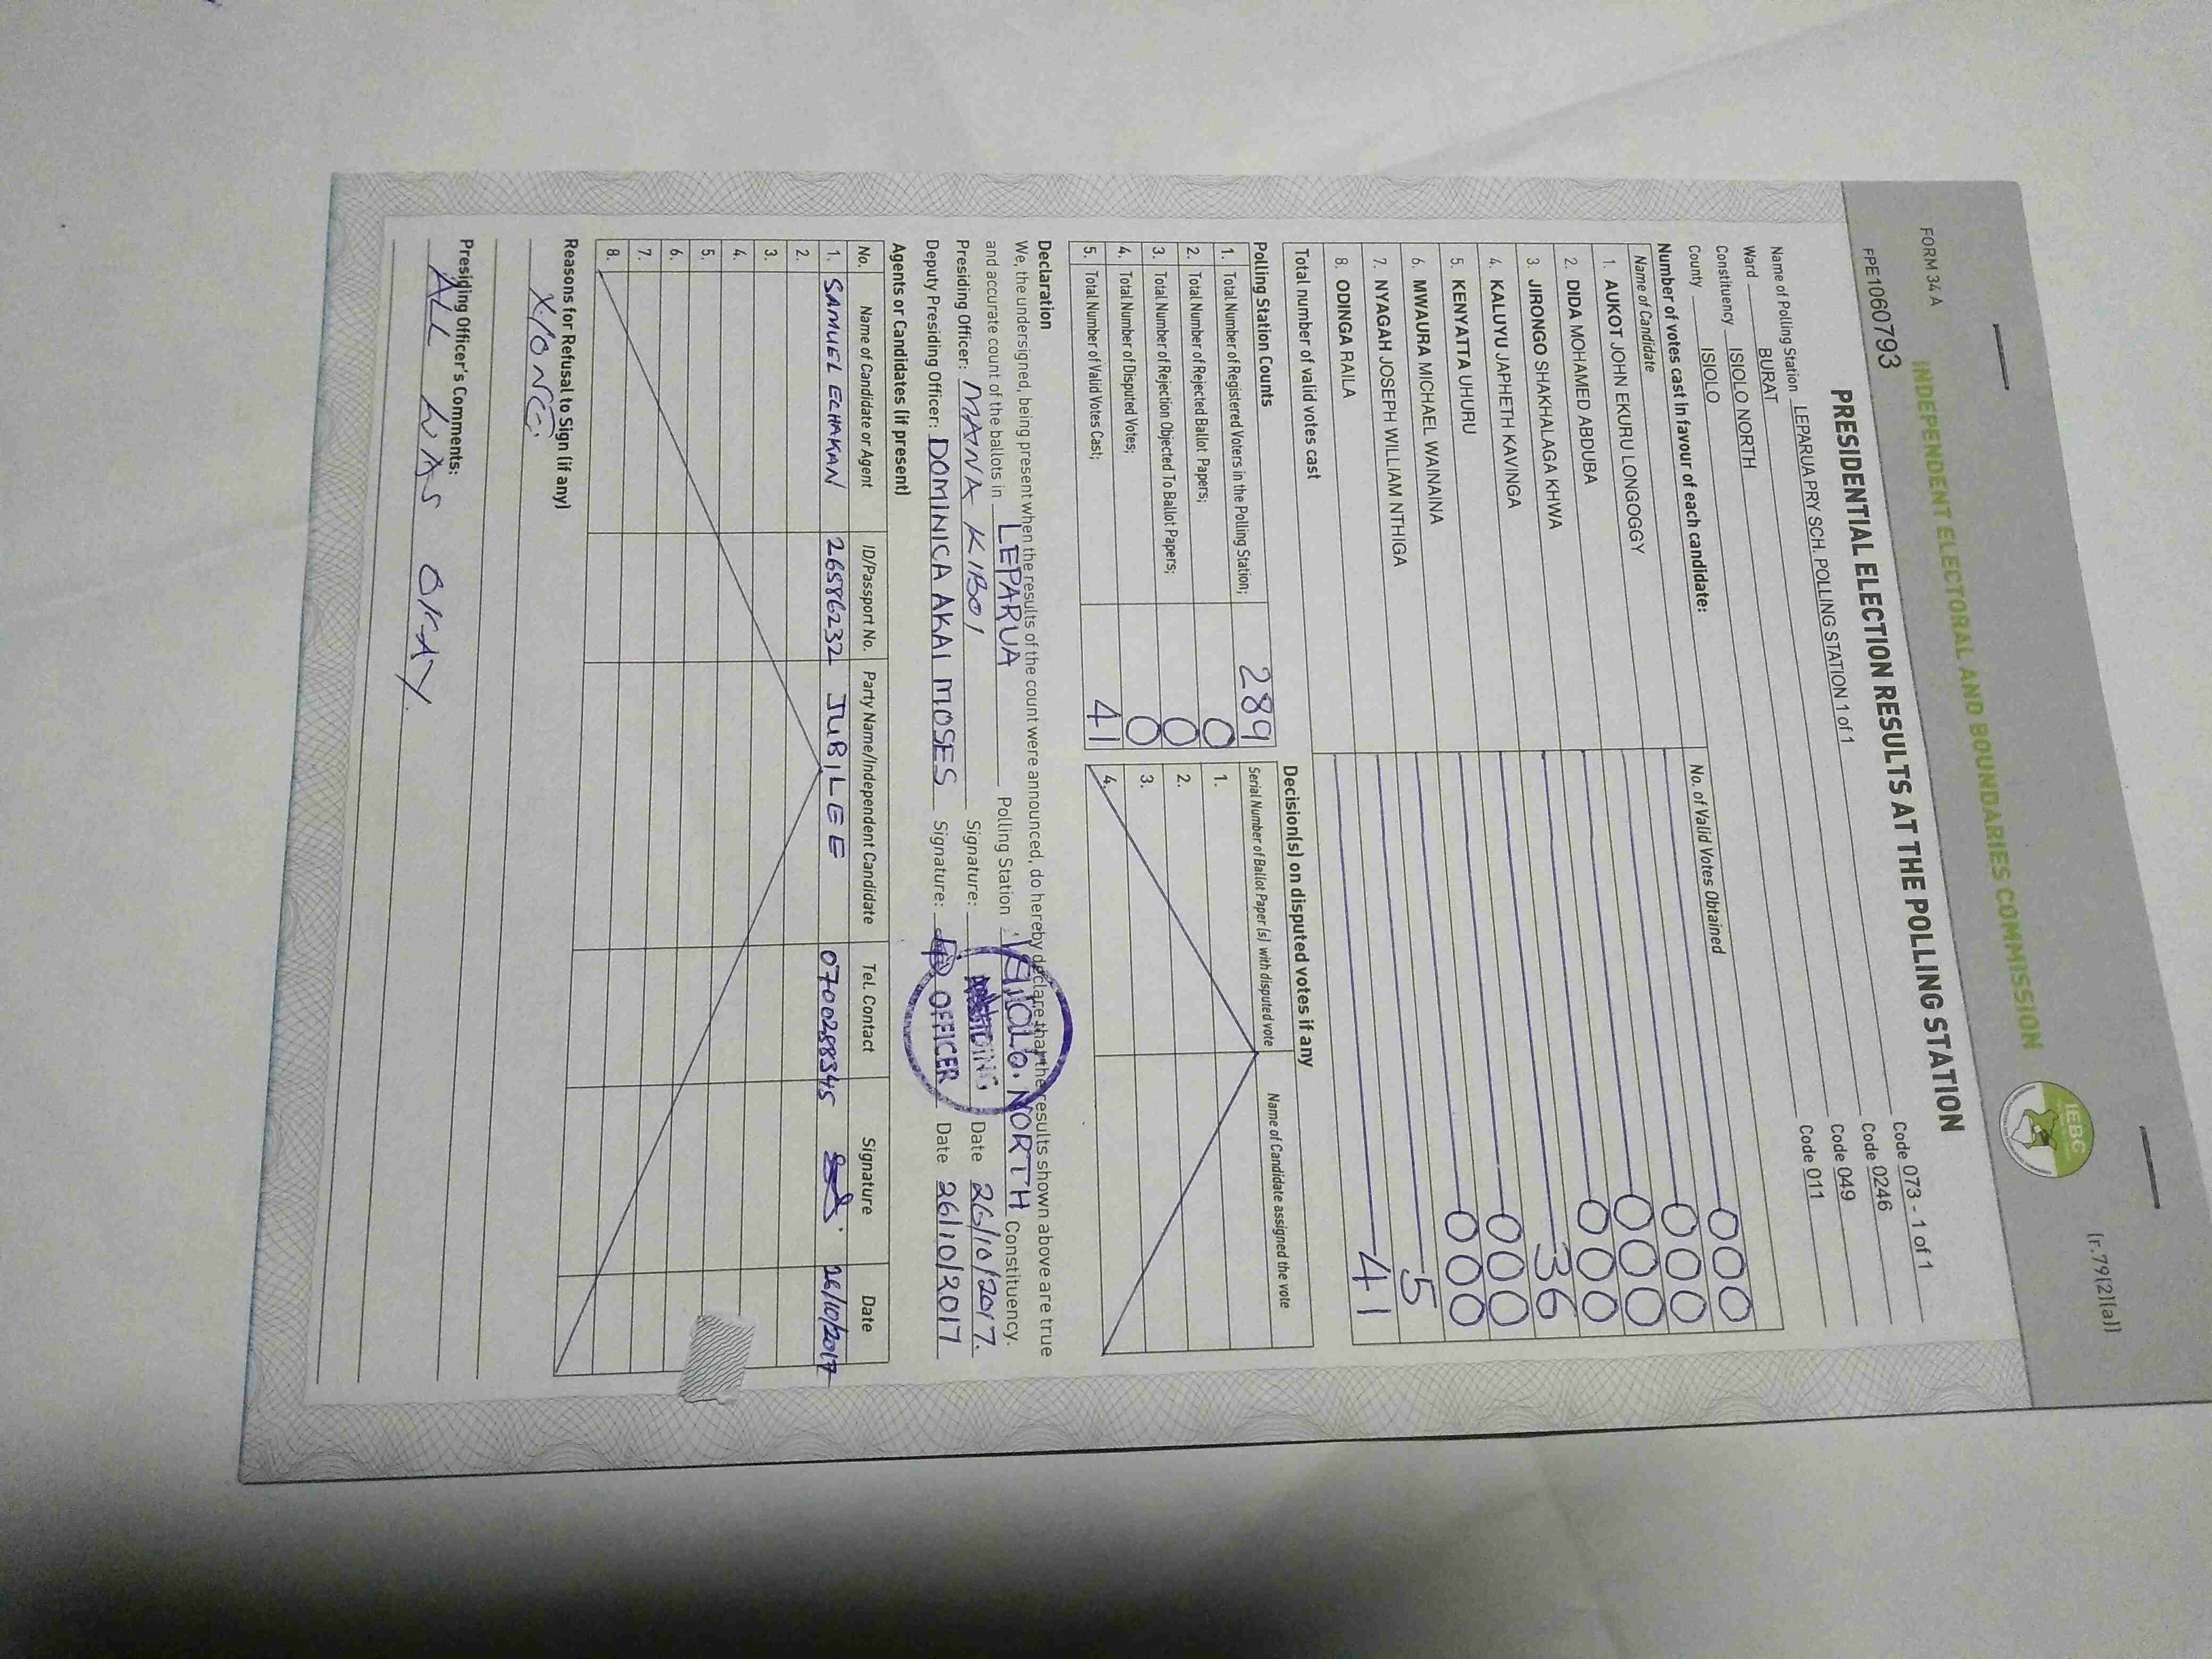 FORM 34 A
(r.79(2)(a))
INDEPENDENT ELECTORAL AND BOUNDARIES COMMISSION
IEBC
PRESIDENTIAL ELECTION RESULTS AT THE POLLING STATION
FPE1060793
Name of Polling Station LEPARUA PRY SCH. POLLING STATION 1 of 1 Code 073 - 1 of 1
Ward BURAT Code 0246
Constituency ISIOLO NORTH Code 049
County ISIOLO Code 011
Number of votes cast in favour of each candidate:
Name of Candidate No. of Valid Votes Obtained
1. AUKOT JOHN EKURU LONGOGGY 000
2. DIDA MOHAMED ABDUBA 000
3. JIRONGO SHAKHALAGA KHWA 000
4. KALUYU JAPHETH KAVINGA 000
5. KENYATTA UHURU 36
6. MWAURA MICHAEL WAINAINA 000
7. NYAGAH JOSEPH WILLIAM NTHIGA 000
8. ODINGA RAILA 5
Total number of valid votes cast 41
Polling Station Counts
1. Total Number of Registered Voters in the Polling Station; 289
2. Total Number of Rejected Ballot Papers; 0
3. Total Number of Rejection Objected To Ballot Papers; 0
4. Total Number of Disputed Votes; 0
5. Total Number of Valid Votes Cast; 41
Decision(s) on disputed votes if any
Serial Number of Ballot Paper (s) with disputed vote Name of Candidate assigned the vote
1.
2.
3.
4.
Declaration
We, the undersigned, being present when the results of the count were announced, do hereby declare that the results shown above are true
and accurate count of the ballots in LEPARUA Polling Station, ISIOLO NORTH Constituency.
Presiding Officer: MAINA KIBOI Signature: Date 26/10/2017.
Deputy Presiding Officer: DOMINICA AKAI MOSES Signature: Date 26/10/2017
PRESIDING
OFFICER
Agents or Candidates (if present)
No. Name of Candidate or Agent ID/Passport No. Party Name/Independent Candidate Tel. Contact Signature Date
1. SAMUEL ECHAKAN 26586232 JUBILEE 0700258345 26/10/2017
2.
3.
4.
5.
6.
7.
8.
Reasons for Refusal to Sign (if any)
Presiding Officer's Comments:
ALL WAS OKAY.